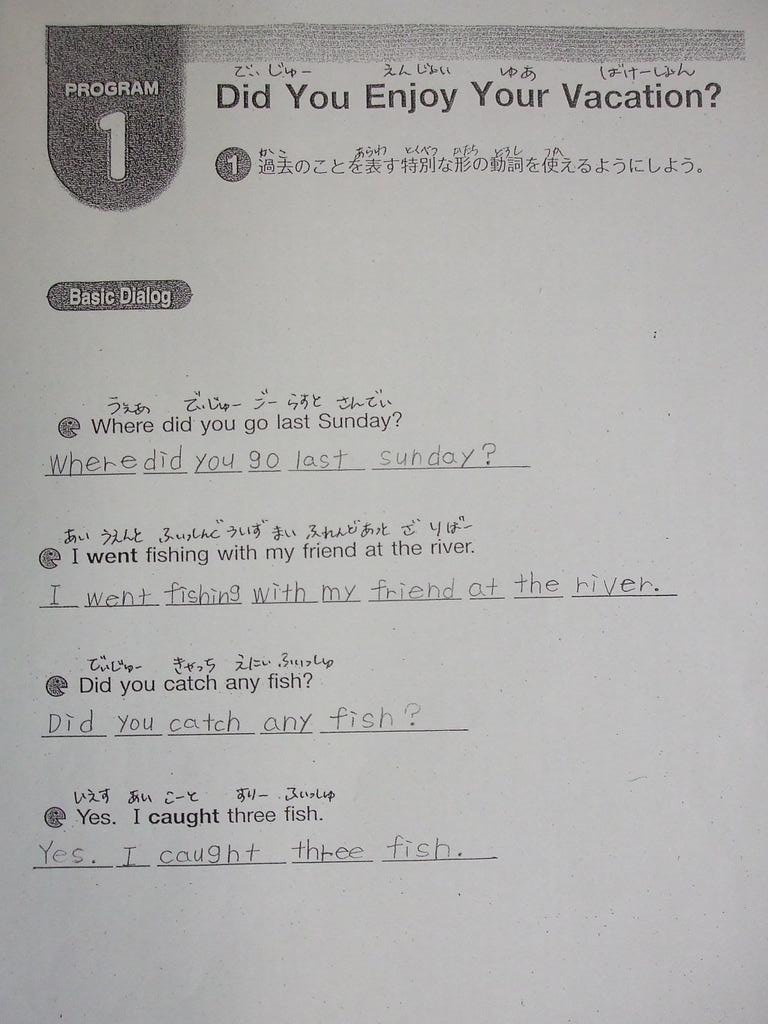 PROGRAM
1
でぃじゅー えんじょい ゆあ ばけーしょん
Did You Enjoy Your Vacation?
かこ あらわ とくべつ かたち どうし つか
1 過去のことを表す特別な形の動詞を使えるようにしよう。
Basic Dialog
うぇあ でぃじゅー ごー らすと さんでい
Where did you go last Sunday?
Where did you go last sunday?
あい うえんと ふぃっしんぐ うぃず まい ふれんど あっと ざ りばー
I went fishing with my friend at the river.
I went fishing with my friend at the river.
でぃじゅー きゃっち えにい ふぃっしゅ
Did you catch any fish?
Did you catch any fish?
いえす あい こーと すりー ふぃっしゅ
Yes. I caught three fish.
Yes. I caught three fish.